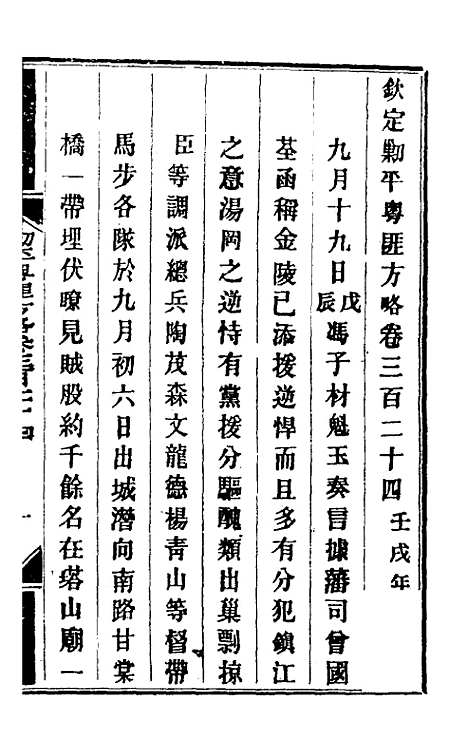 欽定勦平粵匪方略卷三百二十四 壬戌年
九月十九日戊辰馮子材魁玉奏言據藩司曾國
荃函稱金陵已添援逆悍而且多有分犯鎮江
之意湯岡之逆恃有黨援分驅醜類出巢剽掠
臣等調派總兵陶茂森文龍德楊青山等督帶
馬步各隊於九月初六日出城潛向南路甘棠
橋一帶埋伏瞭見賊股約千餘名在塔山廟一